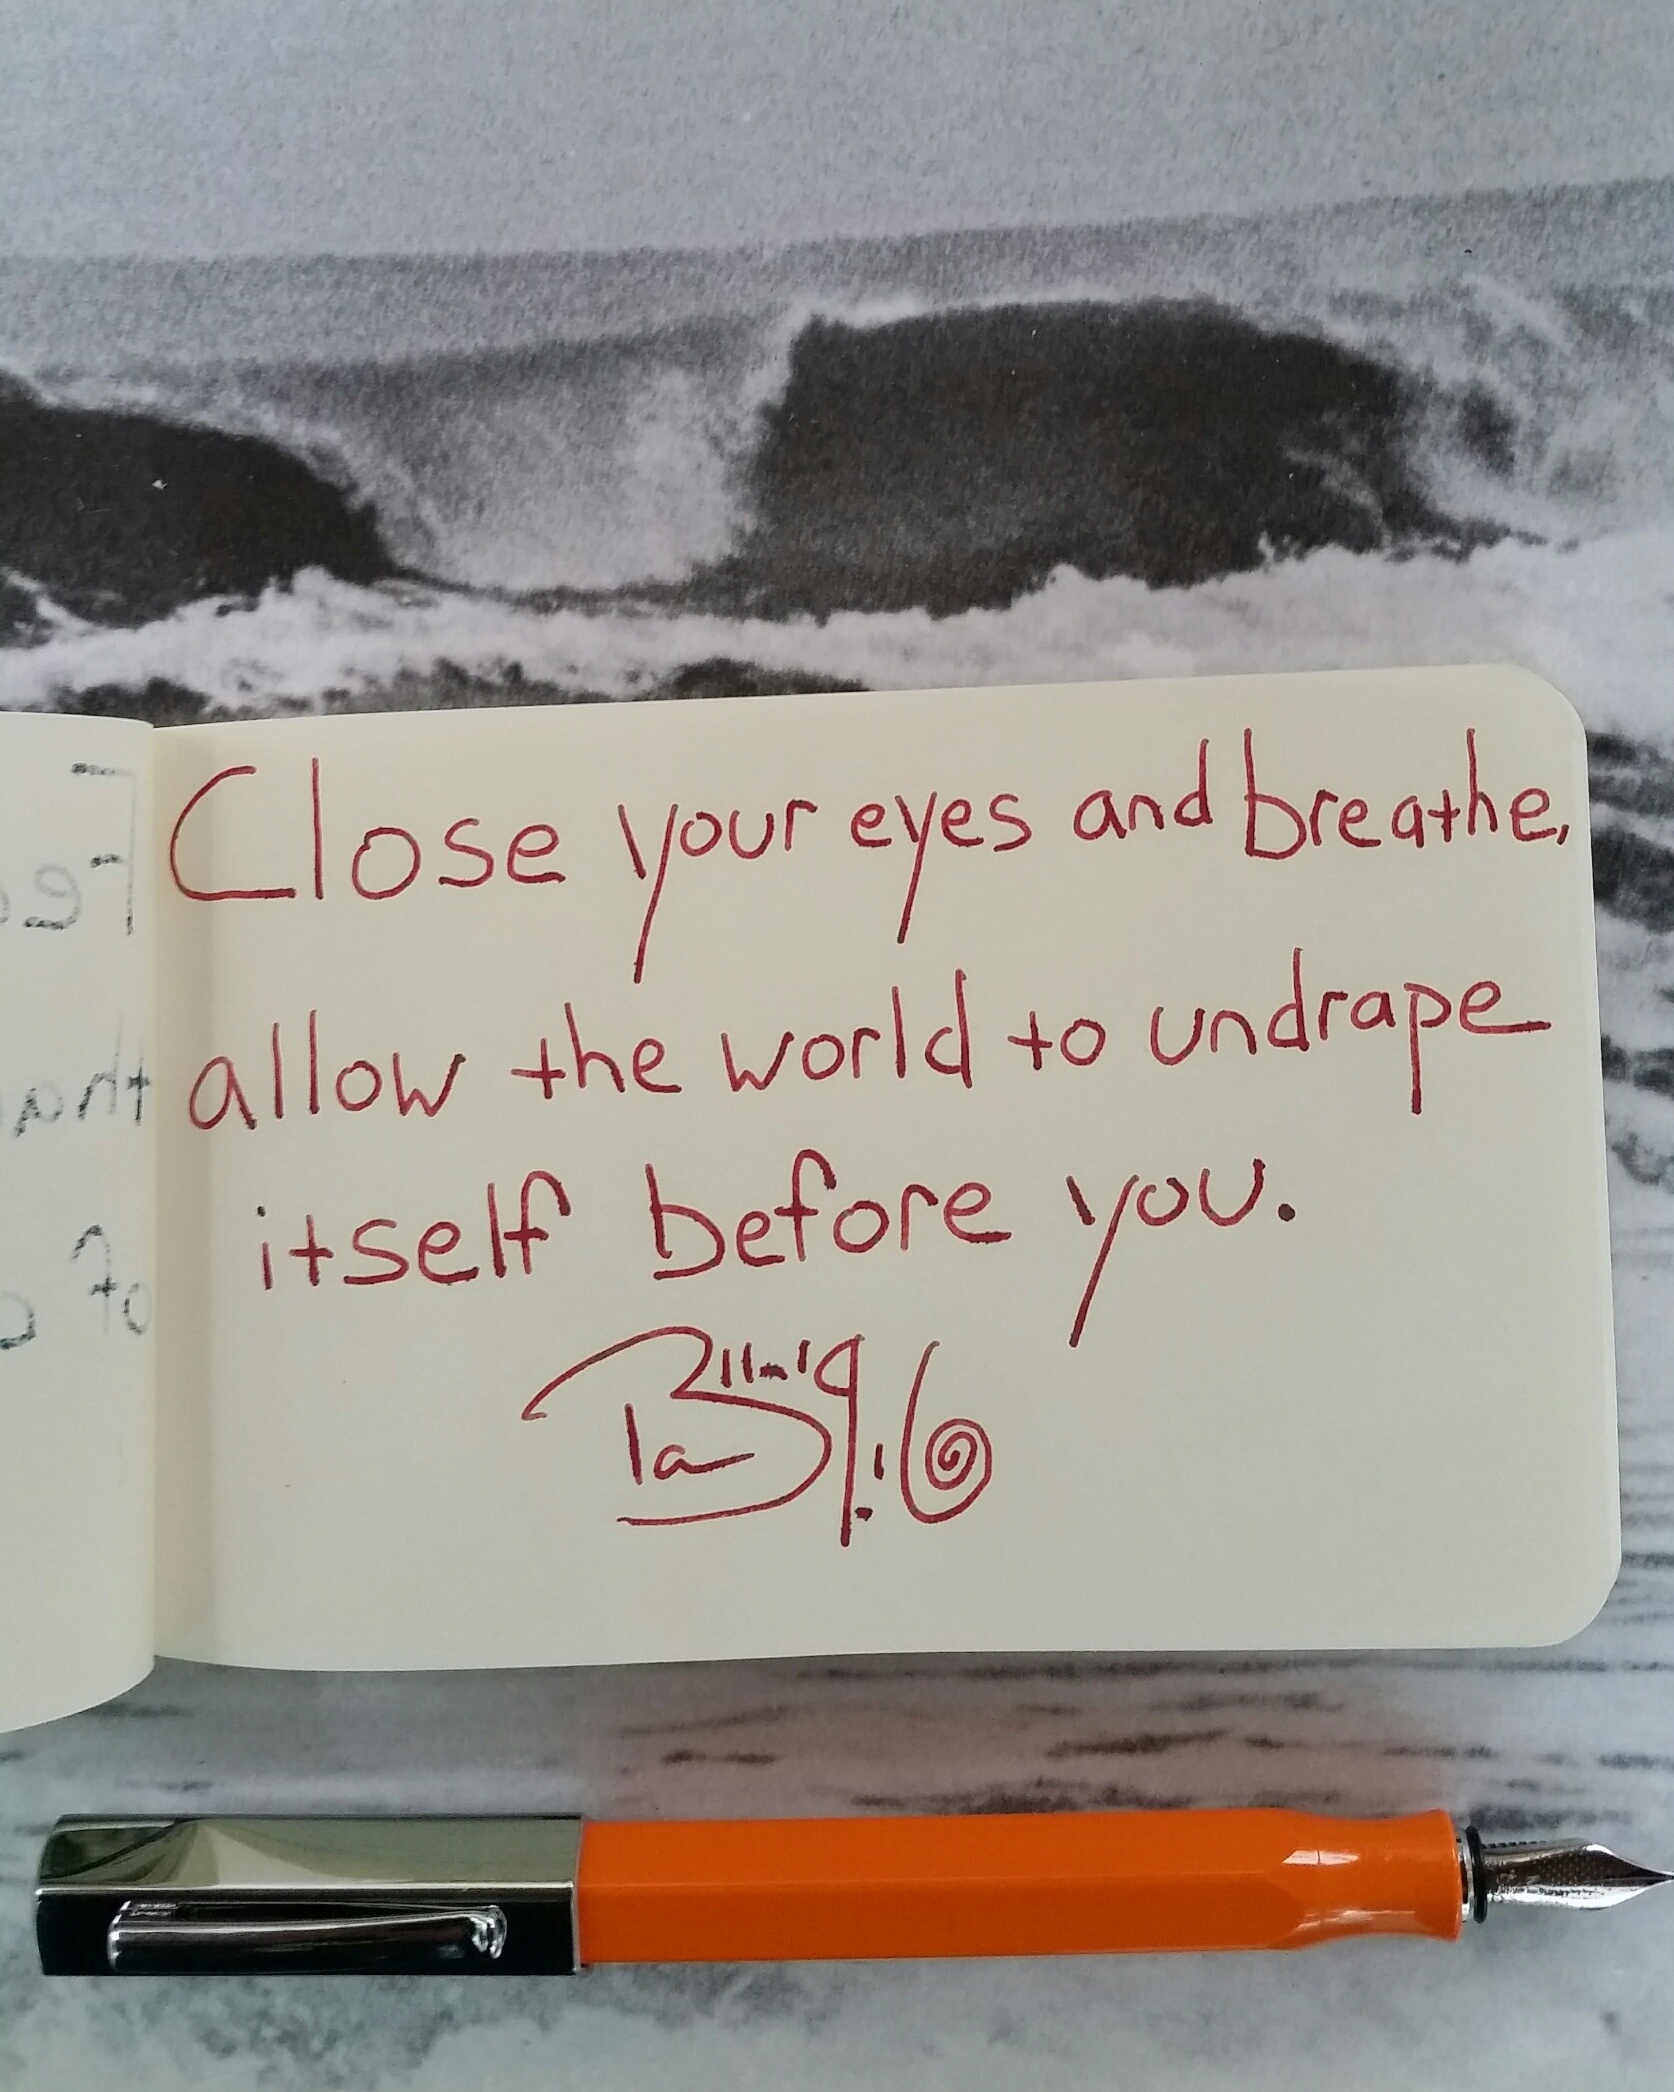 Close your eyes and breathe,
allow the world to undrape
itself before you.